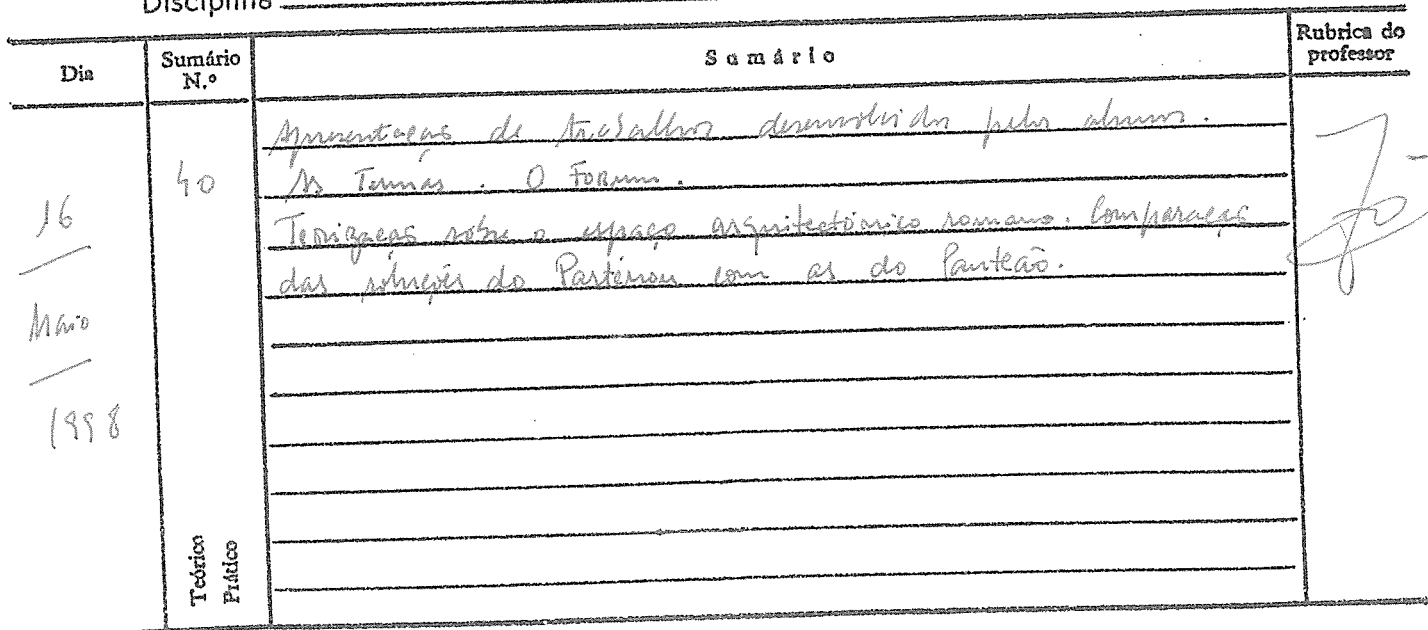 Disciplina
Dia
Sumário N.º
Sumário
Rubrica do professor
16
Maio
1998
40
Apresentação de trabalhos desenvolvidos pelos alunos.
As Termas. O Forum.
Teorização sobre o espaço arquitectónico romano. Comparação
das soluções do Partenon com as do Panteão.
Teórico
Prático